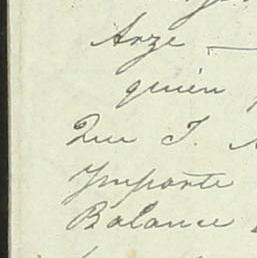 Arze
quien
Que T.
Ymporte
Balance